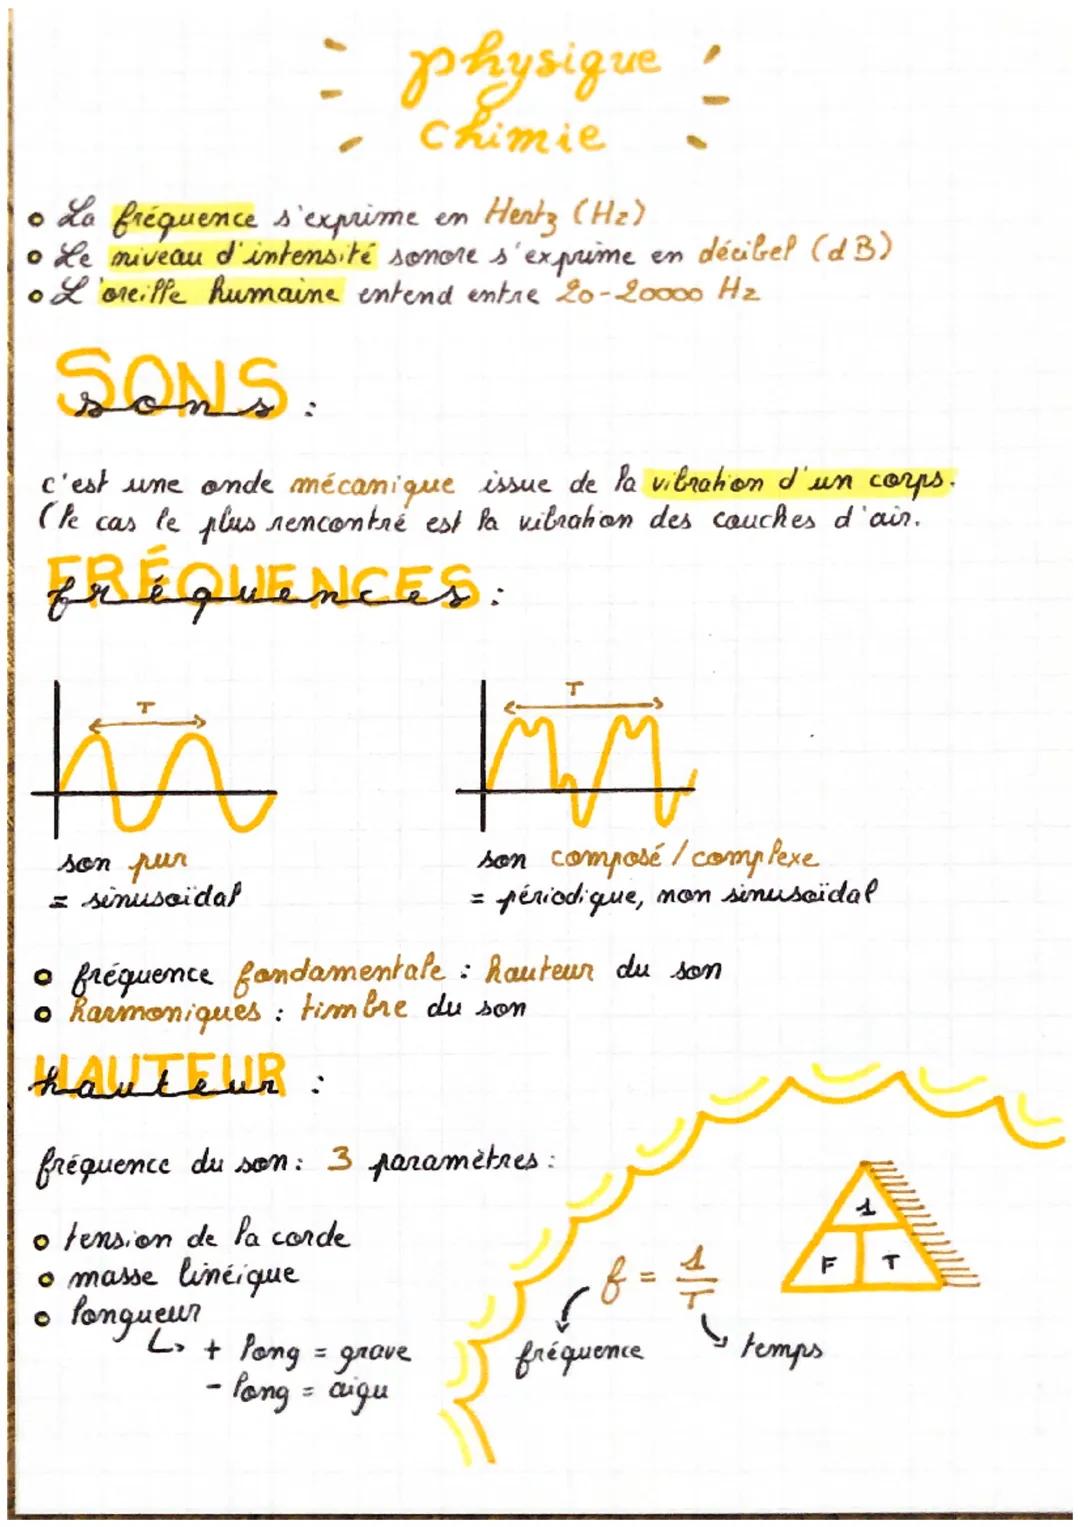 physique
chimie
La fréquence s'exprime en Hertz (Hz)
Le niveau d'intensité sonore s'exprime en décibel (dB)
L'oreille humaine entend entre 20-20000 Hz
SONS
sons :
c'est une onde mécanique issue de la vibration d'un corps.
(le cas le plus rencontré est la vibration des couches d'air.
FRÉQUENCES
fréquences :
T
T
son pur
= sinusoïdal
son composé / complexe
= périodique, non sinusoïdal
fréquence fondamentale : hauteur du son
harmoniques : timbre du son
HAUTEUR
hauteur :
fréquence du son : 3 paramètres :
tension de la corde
masse linéique
longueur
↳ + long = grave
- long = aigu
f = 1/T
fréquence
temps
1
F T